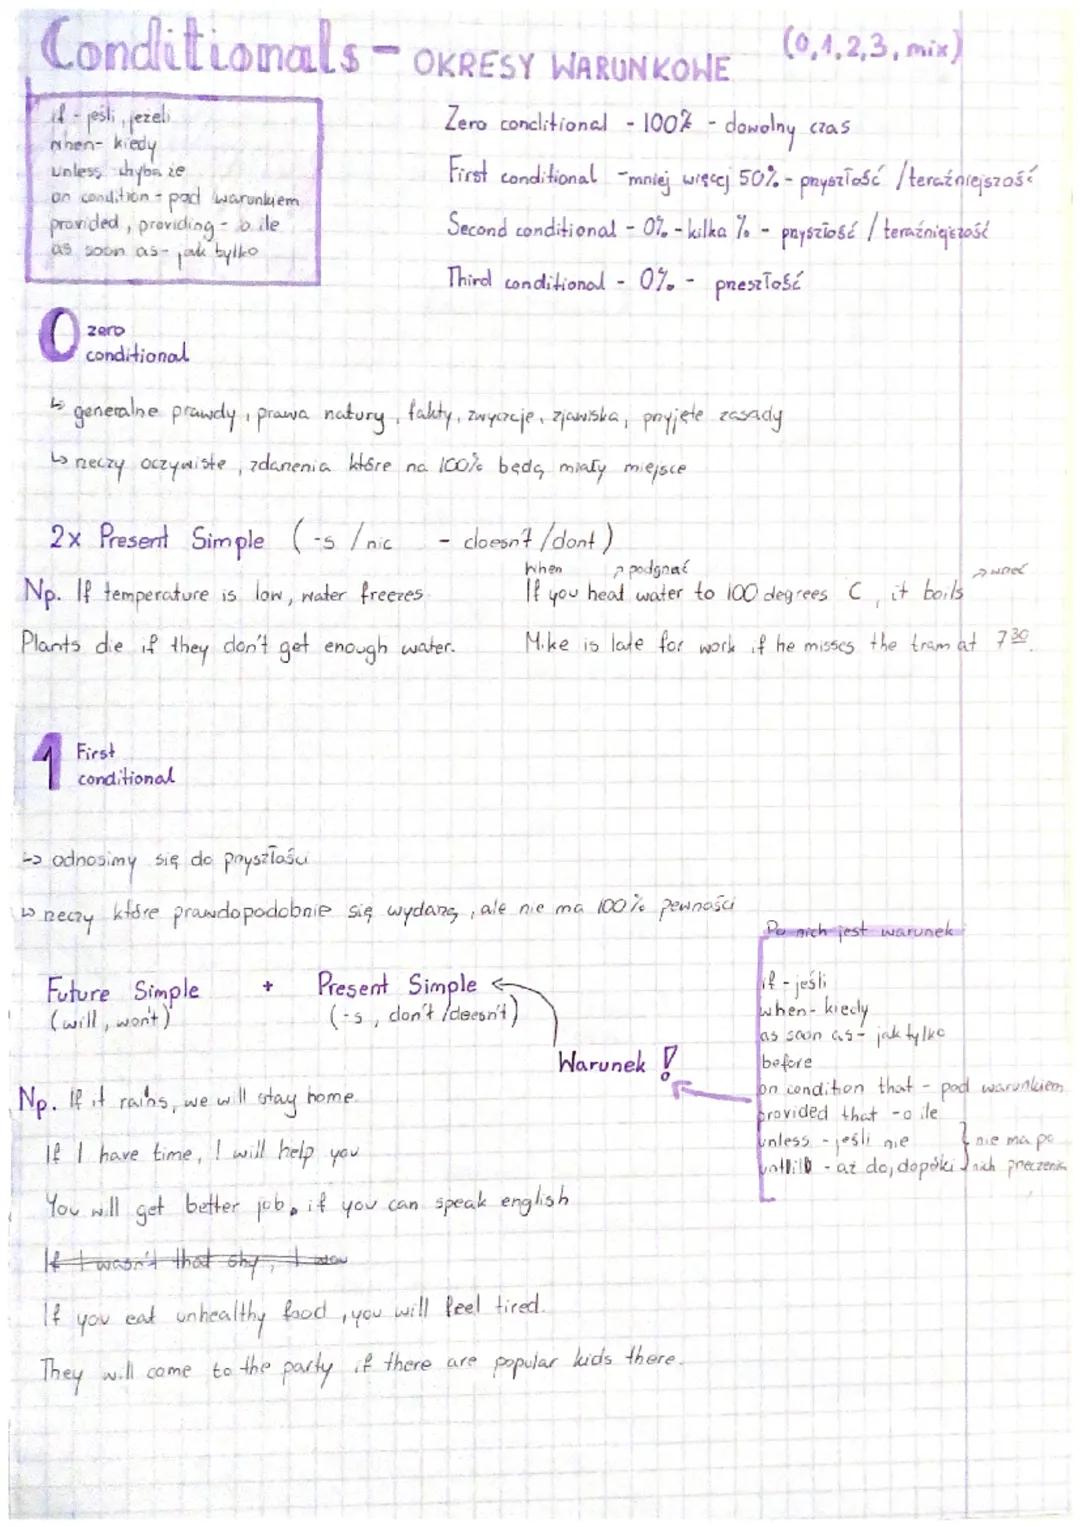 Conditionals - OKRESY WARUNKOWE (0,1,2,3, mix)
if - jeśli, jeżeli
when - kiedy
unless chyba że
on condition - pod warunkiem
provided, providing - o ile
as soon as - jak tylko
Zero conditional - 100% - dowolny czas
First conditional - mniej więcej 50% - przyszłość / teraźniejszość
Second conditional - 0% - kilka % - przyszłość / teraźniejszość
Third conditional - 0% - przeszłość
0 zero
conditional
↳ generalne prawdy, prawa natury, fakty, zwyczaje, zjawiska, przyjęte zasady
↳ rzeczy oczywiste, zdarzenia które na 100% będą miały miejsce
2x Present Simple (-s / nic - doesn't / dont)
Np. If temperature is low, water freezes
When ↗ podgrzać ↗ wrzeć
If you heat water to 100 degrees C, it boils
Plants die if they don't get enough water.
Mike is late for work if he misses the tram at 7 30.
1 First
conditional
↳ odnosimy się do przyszłości
↳ rzeczy które prawdopodobnie się wydarzą, ale nie ma 100% pewności
Future Simple + Present Simple
(will, won't) (-s, don't / doesn't)
Warunek !
Po nich jest warunek
if - jeśli
when - kiedy
as soon as - jak tylko
before
on condition that - pod warunkiem
provided that - o ile
unless - jeśli nie
until - aż do, dopóki
} nie ma po
nich przeczenia
Np. If it rains, we will stay home.
If I have time, I will help you
You will get better job, if you can speak english
If I wasn't that shy, I wou
If you eat unhealthy food, you will feel tired.
They will come to the party if there are popular kids there.